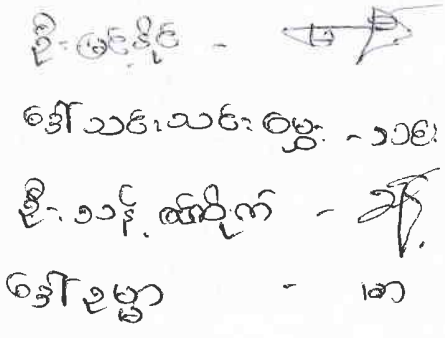 ဦးမြင့်နိုင် -
ဒေါ်သင်းသင်းဝေ - သင်း
ဦးသန့်ဇင်ထိုက် -
ဒေါ်ဥမ္မာ - မာ